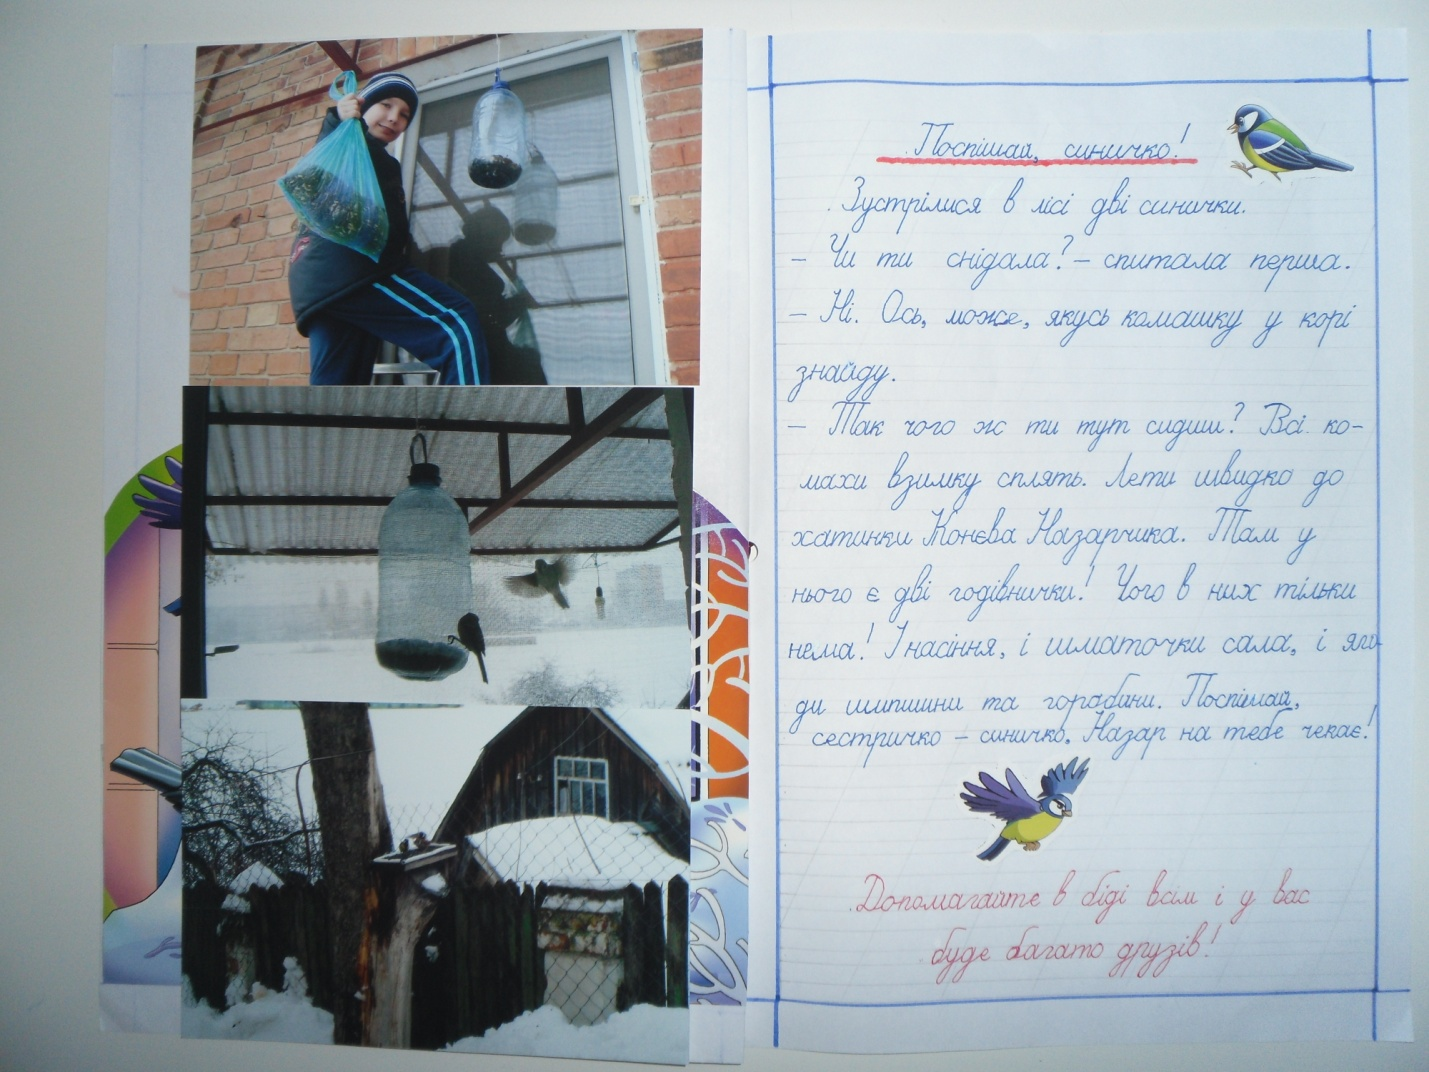 Поспішай, синичко!
Зустрілися в лісі дві синички.
– Чи ти снідала? – спитала перша.
– Ні. Ось, може, якусь комашку у корі
знайду.
– Так чого ж ти тут сидиш? Всі ко-
махи взимку сплять. Лети швидко до
хатинки Конєва Назарчика. Там у
нього є дві годівнички! Чого в них тільки
нема! І насіння, і шматочки сала, і яго-
ди шипшини та горобини. Поспішай,
сестричко – синичко, Назар на тебе чекає!
Допомагайте в біді всім і у вас
буде багато друзів!